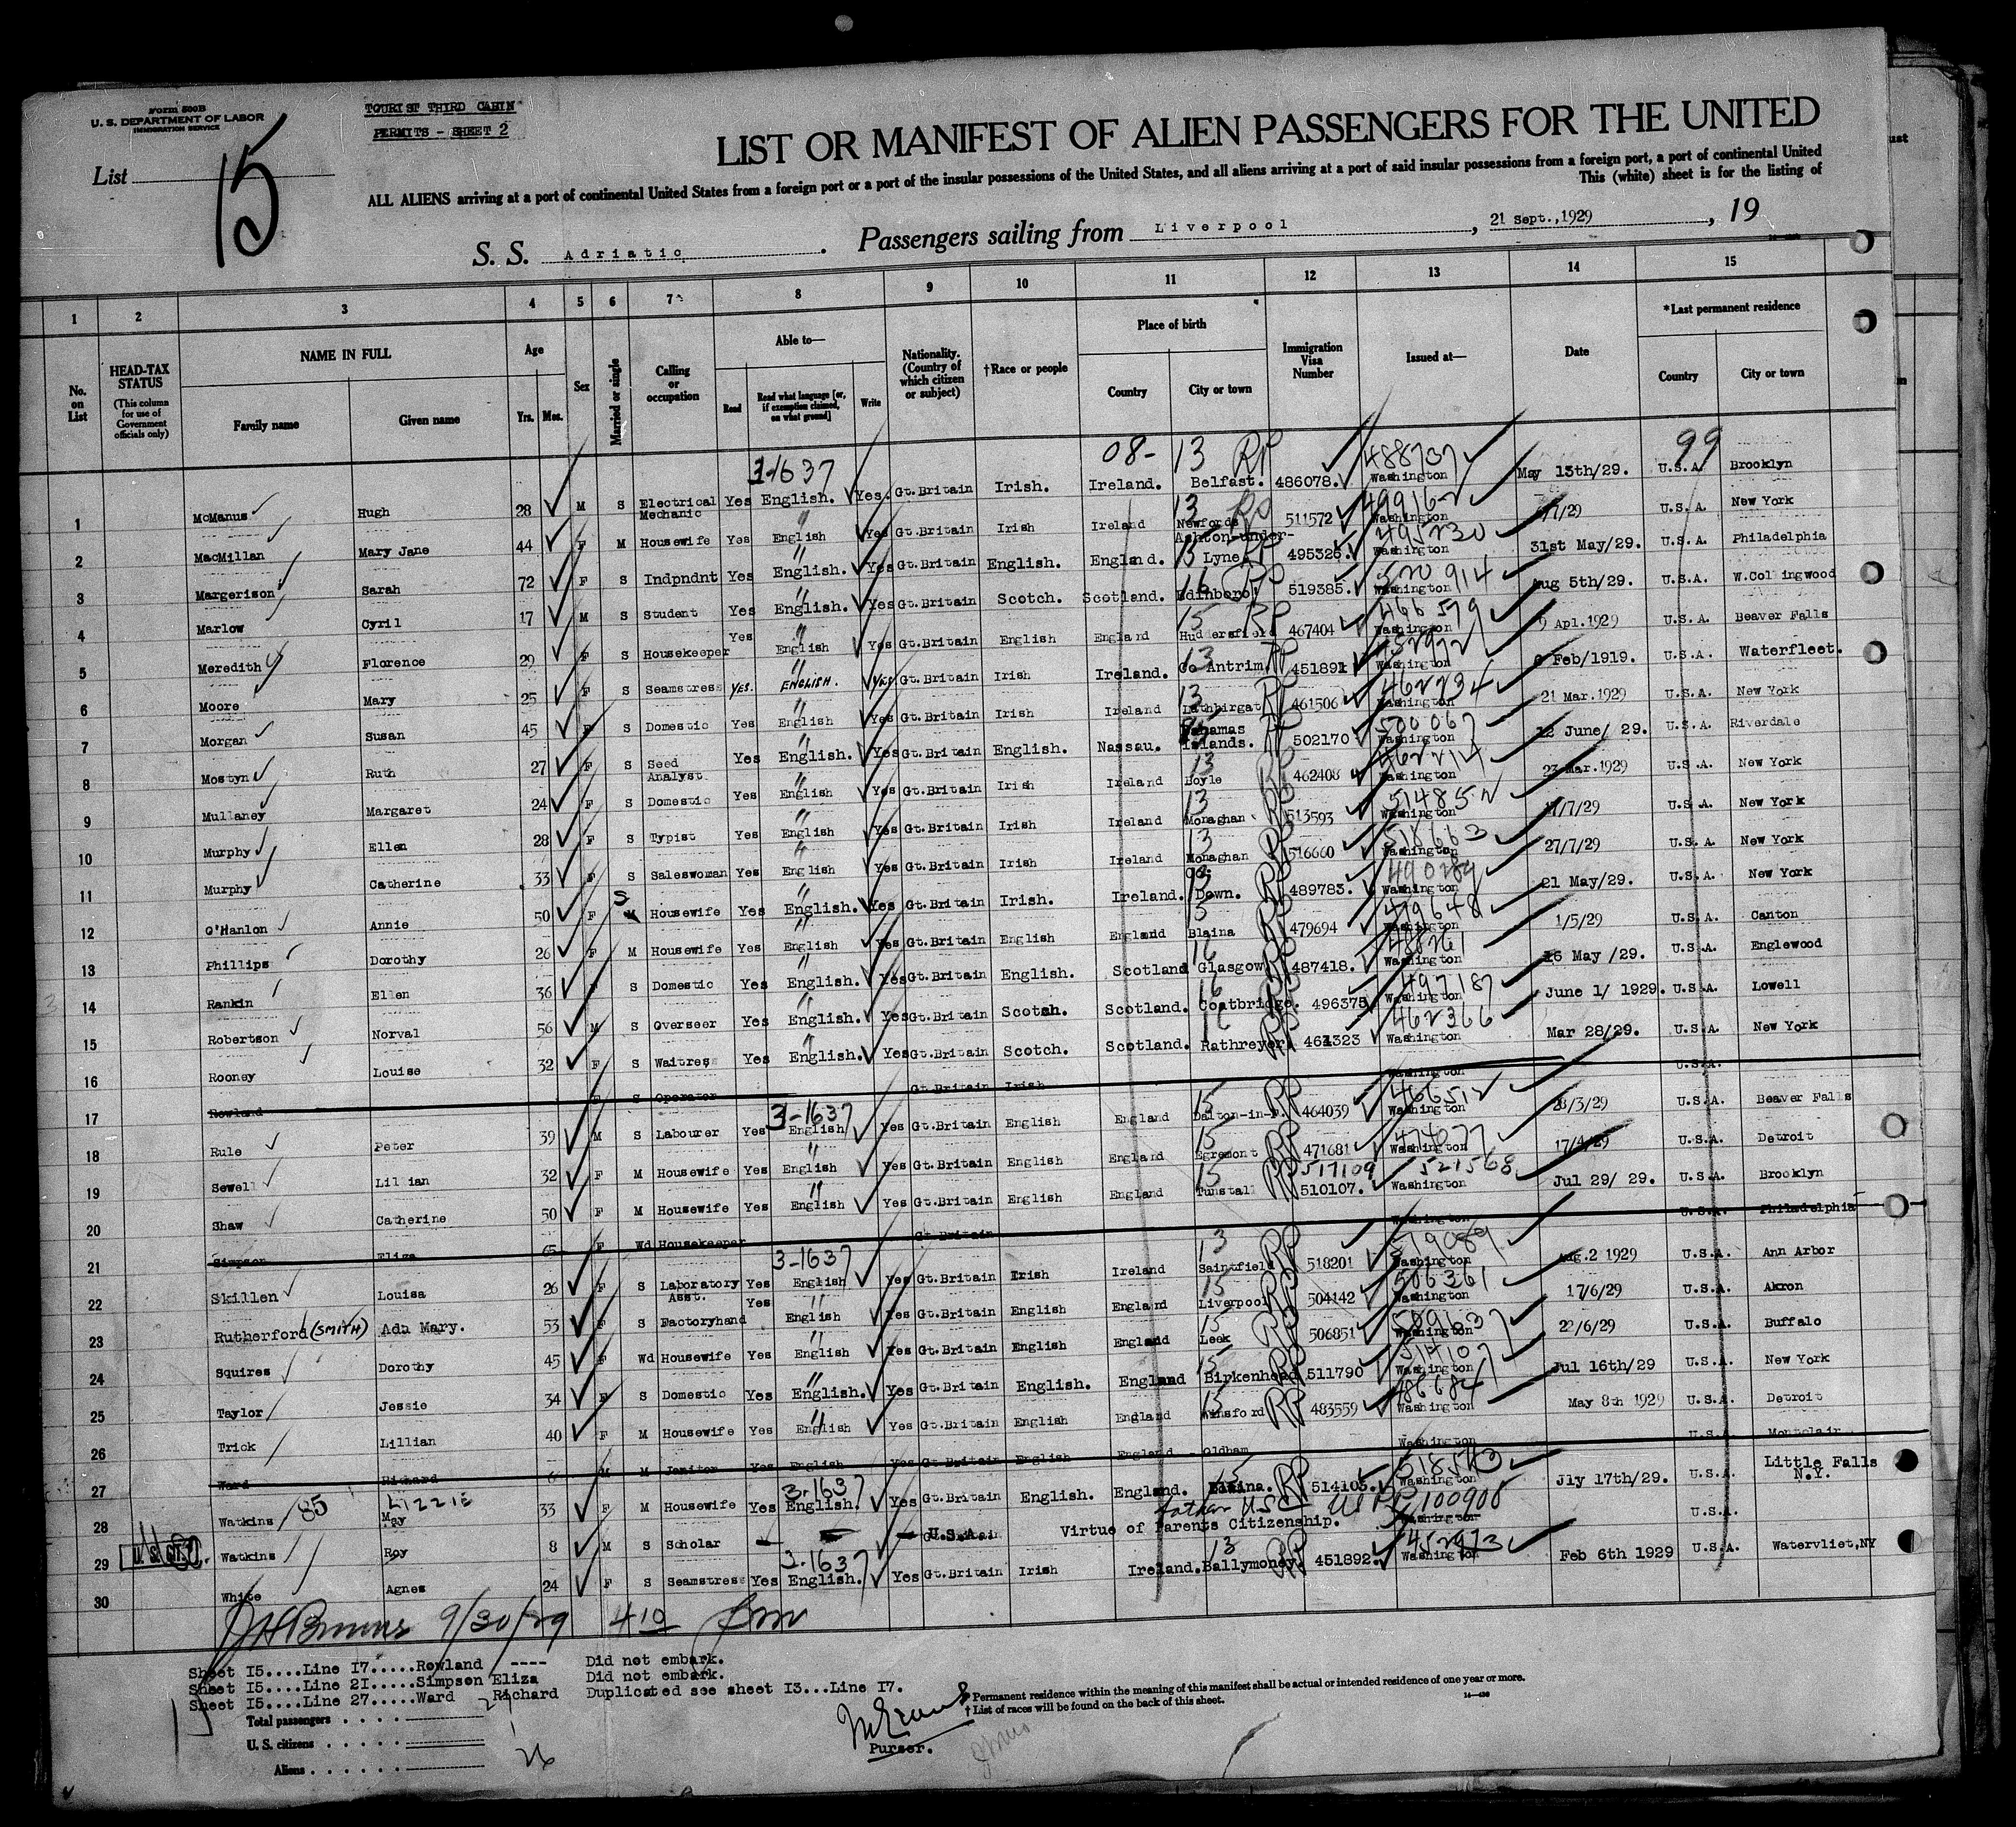 Form 500B
U. S. DEPARTMENT OF LABOR
IMMIGRATION SERVICE
TOURIST THIRD CABIN
PERMITS - SHEET 2
List 15
LIST OR MANIFEST OF ALIEN PASSENGERS FOR THE UNITED
ALL ALIENS arriving at a port of continental United States from a foreign port or a port of the insular possessions of the United States, and all aliens arriving at a port of said insular possessions from a foreign port, a port of continental United
This (white) sheet is for the listing of
S. S. Adriatic. Passengers sailing from Liverpool, 21 Sept.,1929, 19
1 2 3 4 5 6 7 8 9 10 11 12 13 14 15
No. on List
HEAD-TAX STATUS
(This column for use of Government officials only)
NAME IN FULL
Family name
Given name
Age
Yrs. Mos.
Sex
Married or single
Calling or occupation
Able to—
Read
Read what language [or, if exemption claimed, on what ground]
Write
Nationality. (Country of which citizen or subject)
†Race or people
Place of birth
Country
City or town
Immigration Visa Number
Issued at—
Date
*Last permanent residence
Country
City or town
3-1637 08- 13 RP 488737 99
1 McManus Hugh 28 M S Electrical Mechanic Yes English. Yes. Gt.Britain Irish. Ireland. Belfast. 486078. Washington May 13th/29. U.S.A. Brooklyn
2 MacMillan Mary Jane 44 F M Housewife Yes English Yes Gt.Britain Irish Ireland Newfords 511572 Washington /7/29 U.S.A. New York
3 Margerison Sarah 72 F S Indpndnt Yes English. Yes Gt.Britain English. England. Ashton-under-Lyne 495326. 495230 Washington 31st May/29. U.S.A. Philadelphia
4 Marlow Cyril 17 M S Student Yes English. Yes Gt.Britain Scotch. Scotland. Edinboro' 519385. 520914 Washington Aug 5th/29. U.S.A. W.Collingwood
5 Meredith Florence 29 F S Housekeeper Yes English Yes Gt.Britain English England Huddersfield 467404 466579 Washington 9 Apl.1929 U.S.A. Beaver Falls
6 Moore Mary 25 F S Seamstress YES. ENGLISH. YES Gt.Britain Irish Ireland. Co Antrim. 451891 Washington Feb/1919. U.S.A. Waterfleet.
7 Morgan Susan 45 F S Domestic Yes English Yes Gt.Britain Irish Ireland Rathbirgat 461506 462234 Washington 21 Mar.1929 U.S.A. New York
8 Mostyn Ruth 27 F S Seed Analyst. Yes English. Yes Gt.Britain English. Nassau. Bahamas Islands. 502170 500067 Washington 12 June/ 29. U.S.A. Riverdale
9 Mullaney Margaret 24 F S Domestic Yes English Yes Gt.Britain Irish Ireland Boyle 462408 462214 Washington 23 Mar.1929 U.S.A. New York
10 Murphy Ellen 28 F S Typist Yes English Yes Gt.Britain Irish Ireland Monaghan 513593 514852 Washington /7/29 U.S.A. New York
11 Murphy Catherine 33 F S Saleswoman Yes English Yes Gt.Britain Irish Ireland Monaghan 516660 518663 Washington 27/7/29 U.S.A. New York
12 O'Hanlon Annie 50 F S Housewife Yes English. Yes Gt.Britain Irish. Ireland. Co. Down. 489783. 490289 Washington 21 May/29. U.S.A. New York
13 Phillips Dorothy 26 F M Housewife Yes English Yes Gt.Britain English England Blaina 479694 479648 Washington 1/5/29 U.S.A. Canton
14 Rankin Ellen 36 F S Domestic Yes English. Yes Gt.Britain English. Scotland Glasgow 487418. 488261 Washington 16 May /29. U.S.A. Englewood
15 Robertson Norval 56 M S Overseer Yes English. Yes Gt.Britain Scotch. Scotland. Coatbridge. 496375. 497187 Washington June 1/ 1929. U.S.A. Lowell
16 Rooney Louise 32 F S Waitress Yes English. Yes Gt.Britain Scotch. Scotland. Rathreyer 461323 462366 Washington Mar 28/29. U.S.A. New York
17 Rowland F S Operator Gt.Britain Irish Washington U.S.A.
3-1637
18 Rule Peter 39 M S Labourer Yes English Yes Gt.Britain English England Dalton-in-F. 464039 466512 Washington 28/3/29 U.S.A. Beaver Falls
19 Sewell Lillian 32 F M Housewife Yes English Yes Gt.Britain English England Egremont 471681 474077 Washington 17/4/29 U.S.A. Detroit
20 Shaw Catherine 50 F M Housewife Yes English Yes Gt.Britain English England Tunstall 517109 510107. 521568 Washington Jul 29/ 29. U.S.A. Brooklyn
21 Simpson Eliza 65 F Wd Housekeeper Gt.Britain Washington U.S.A. Philadelphia
3-1637
22 Skillen Louisa 26 F S Laboratory Asst. Yes English Yes Gt.Britain Irish Ireland Saintfield 518201 519089 Washington Aug.2 1929 U.S.A. Ann Arbor
23 Rutherford (SMITH) Ada Mary. 53 F S Factoryhand Yes English Yes Gt.Britain English England Liverpool 504142 506361 Washington 17/6/29 U.S.A. Akron
24 Squires Dorothy 45 F Wd Housewife Yes English Yes Gt.Britain English England Leek 506851 Washington 22/6/29 U.S.A. Buffalo
25 Taylor Jessie 34 F S Domestic Yes English. Yes Gt.Britain English. England Birkenhead 511790 517107 Washington Jul 16th/29 U.S.A. New York
26 Trick Lillian 40 F M Housewife Yes English Yes Gt.Britain English England Winsford 483559 486684 Washington May 8th 1929 U.S.A. Detroit
27 Ward Richard 6 M M Janitor Yes English Yes Gt.Britain English England Oldham Washington U.S.A. Montclair
3-1637
28 Watkins 85 Lizzie May 33 F M Housewife Yes English. Yes Gt.Britain English. England. Blaina. 514103. Washington Jly 17th/29. U.S.A. Little Falls N.Y.
father USC US PP 100908
29 U. S. CIT. Watkins Roy 8 M S Scholar U.S.A. Virtue of Parents Citizenship. Washington U.S.A.
3-1637
30 White Agnes 24 F S Seamstress Yes English. Yes Gt.Britain Irish Ireland. Ballymoney. 451892. Washington Feb 6th 1929 U.S.A. Watervliet,NY
9/30/29 4 10
Sheet I5....Line I7.....Rowland ---- Did not embark.
Sheet I5....Line 2I.....Simpson Eliza Did not embark.
Sheet I5....Line 27.....Ward Richard Duplicated see sheet I3...Line I7.
Total passengers
U. S. citizens
Aliens 26
Purser.
* Permanent residence within the meaning of this manifest shall be actual or intended residence of one year or more.
† List of races will be found on the back of this sheet.
14—430